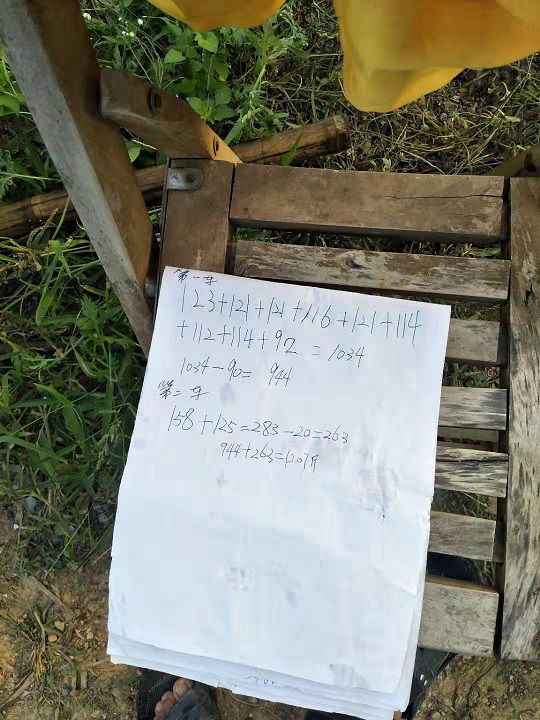 第一车
123+121+121+116+121+114
+112+114+92 = 1034
1034-90= 944
第二车
158+125=283-20=263
944+263=1207斤